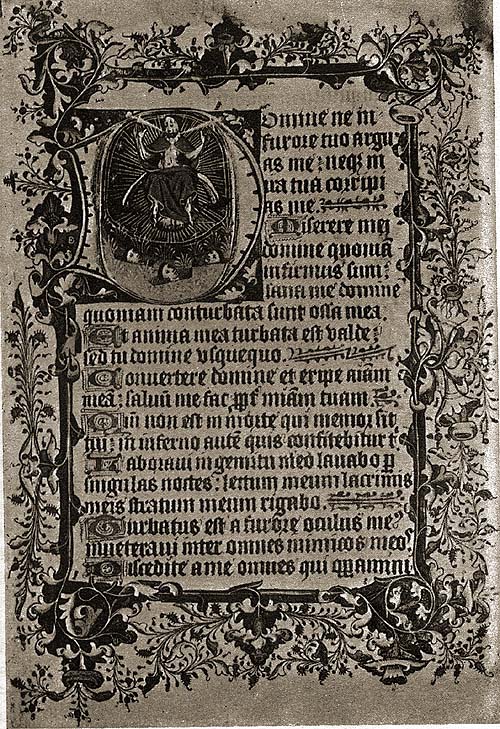 Domine ne in
furore tuo argu
as me : neqz in
ira tua corripi
as me.
Miserere mei
domine quoniā
infirmus sum :
sana me domine
quoniam conturbata sunt ossa mea :
Et anima mea turbata est valde :
sed tu domine vsquequo.
Convertere domine et eripe aīam
meā : saluū me fac ꝓpť miām tuam
Qm̄ non est in morte qui memor sit
tui : in inferno autē quis confitebitur t
Laboravi in gemitu meo lavabo ꝑ
singulas noctes : lectum meum lacrimis
meis stratum meum rigabo.
Turbatus est a furore oculus meꝰ
inueteravi inter omnes inimicos meos
Discedite a me omnes qui oꝑamini